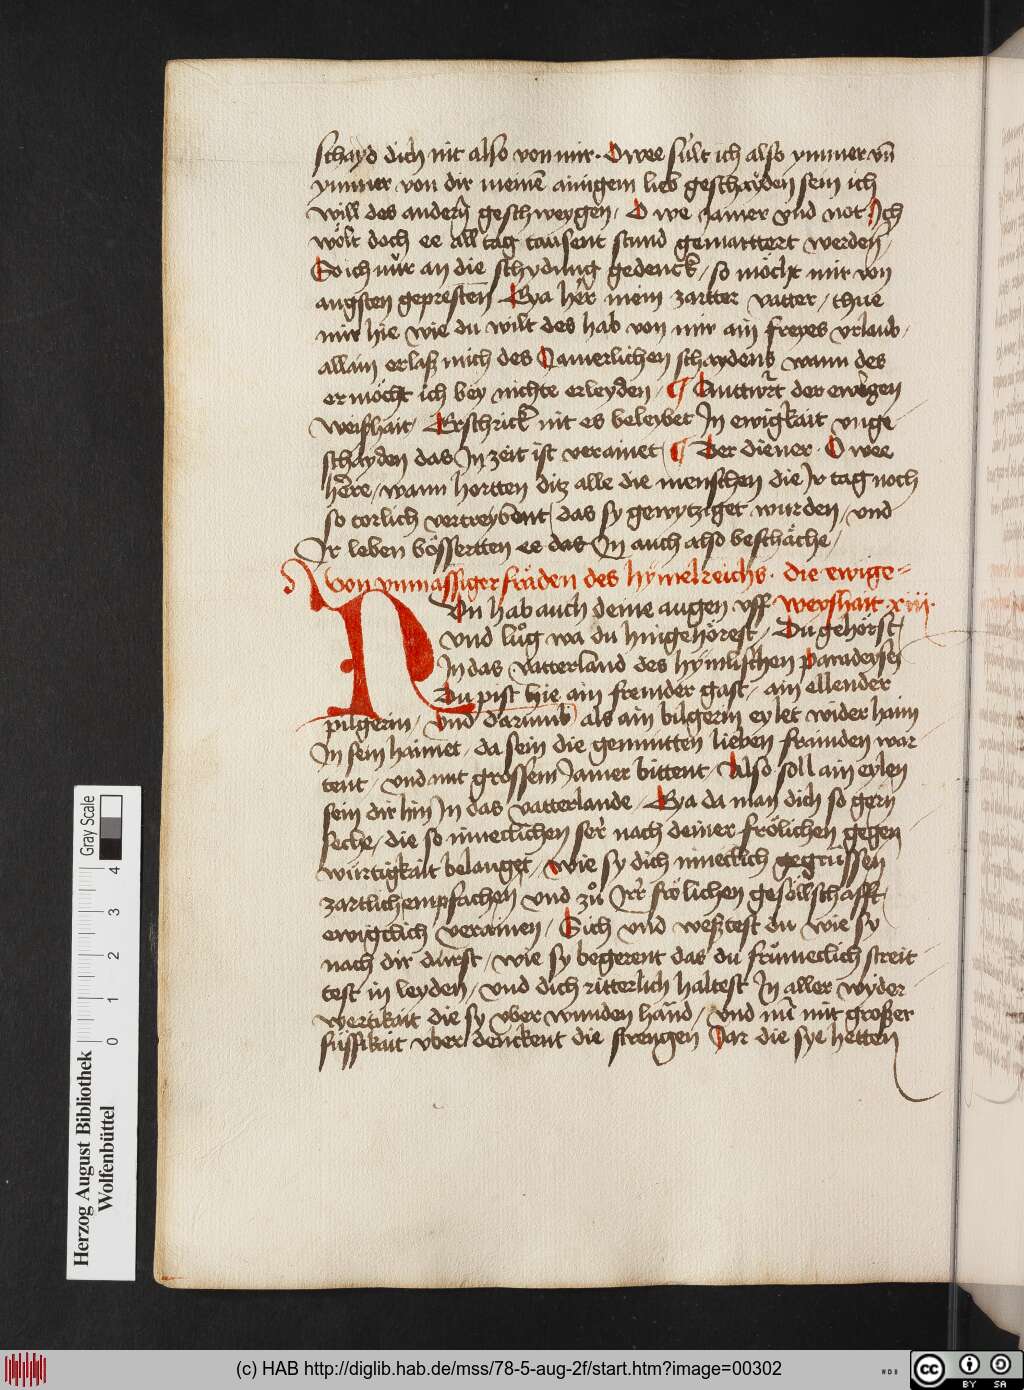 schayd dich nit also von mir · Owee sult ich also ymmer vn̄
ymmer von dir meinē ainigem lieb geschayden sein ich
will des andern̄ geschweygen / O we Jamer vnd not Ich
wölt doch ee all tag tausent stund gemarttert werden /
So ich nŭr an die schydung gedenck / so möcht mir von
angsten geprestē Eya hēr mein zartter vatter / thue
mir hie wie du wilt des hab von mir ain freyes vrlaub /
allain erlaß mich des Jamerlichen schaydens wann des
er möcht ich bey nichte erleyden / ¶ Anttwūrt der ewigen
weißhait / Erschrick nit es beleibet In ewigkait vnge
schayden das In zeit ist verainet / ¶ Der diener · O wee
here / wann hortten ditz alle die menschen die Ir tag noch
so torlich vertreybent / das sy gewytziget wurden / vnd
Ir leben bössertten ee das In auch also beschäche /
Von vnmässiger fräden des hymelreichs · die ewige=
weyshait · xiii ·
NUn hab auch deine augen vff
vnd lůg wa du hingehörest / Du gehörst /
In das vatterland des hymlischen paradeyses
Du pist hie ain fremder gast / ain ellender
pilgerin / vnd darumb als ain bilgerin eylet wider haim
In sein haimet / da sein die gemutten lieben frainden war
tent / vnd mit grossem Jamer bittent / Also soll ain eylen
sein dir hin In das vatterlande / Eya da man dich so gern
seche / die so inneclichen ser nach deiner frölichen gegen
würtigkait belanget / wie sy dich inneclich gegrüssen
zartlich empfachen vnd zů Irr frölichen gesöllschafft
ewigclich verainen / Sich vnd weßtest du wie sy
nach dir dürst / wie sy begerent das du frümeclich streit
test in leyden / vnd dich ritterlich haltest In aller wyder
wertikait die sy vber wunden hānd / vnd nū mit großer
süssikait vber denckent die strengen Jar die sye hetten
Herzog August Bibliothek
Wolfenbüttel
0 1 2 3 4
Gray Scale
(c) HAB http://diglib.hab.de/mss/78-5-aug-2f/start.htm?image=00302
WDB
cc
BY SA